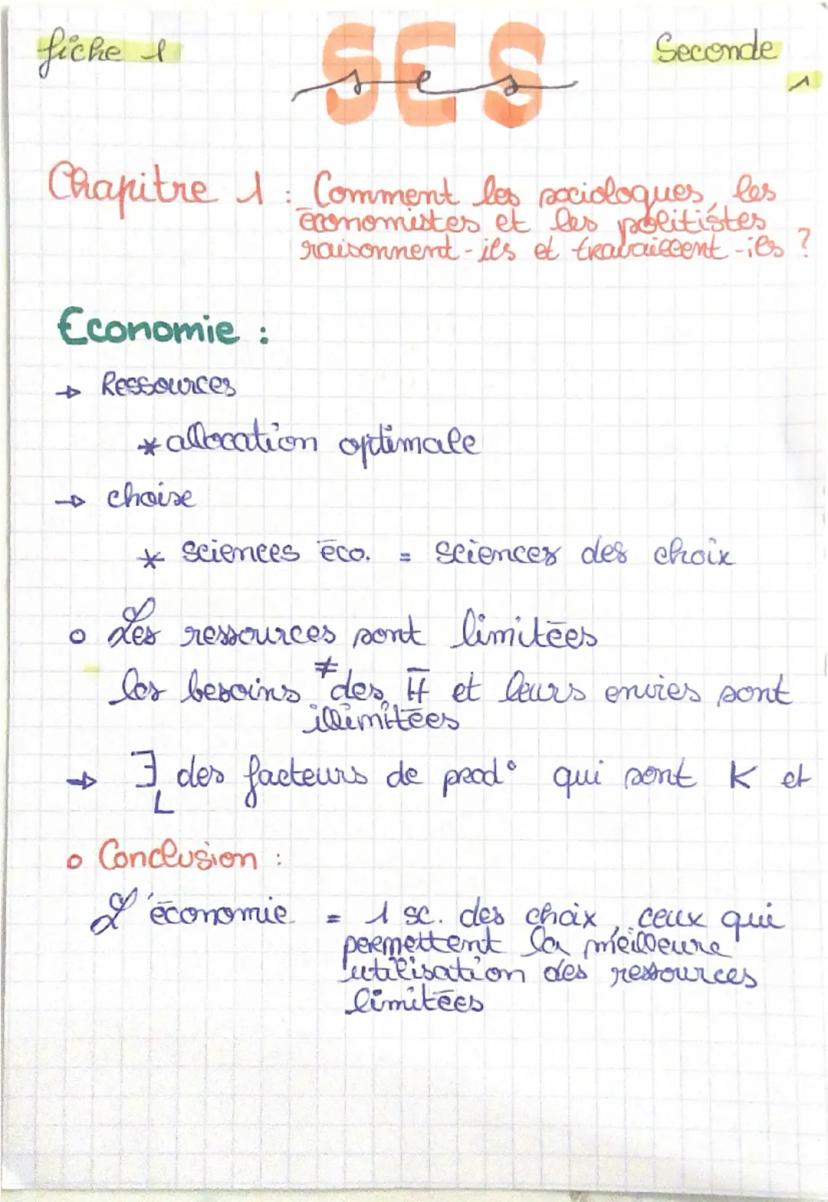 fiche 1
SES
ses
Seconde
1
Chapitre 1 : Comment les sociologues, les
économistes et les politistes
raisonnent-ils et travaillent-ils ?
Economie :
→ Ressources
* allocation optimale
→ choise
* sciences éco. = sciences des choix
o Les ressources sont limitées
≠
les besoins des H et leurs envies sont
illimitées
→ ∃ des facteurs de prod° qui sont K et
L
o Conclusion :
L'économie = 1 sc. des choix, ceux qui
permettent la meilleure
utilisation des ressources
limitées